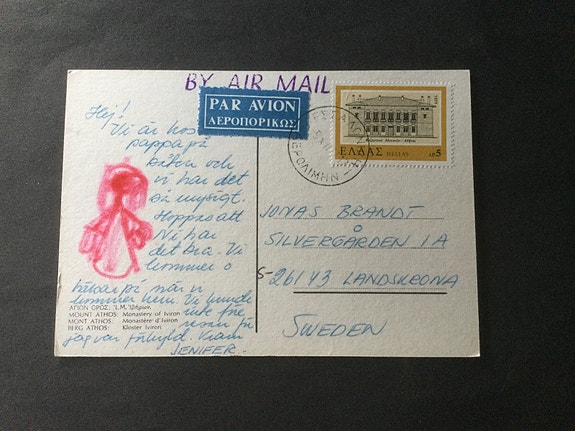 BY AIR MAIL
PAR AVION
ΑΕΡΟΠΟΡΙΚΩΣ
ΕΛΛΑΣ HELLAS ΔΡ5
Hej!
Vi är hos
pappa på
båten och
vi har det
så mysigt.
Hoppas att
Ni har
det bra. Vi
kommer o
hälsar på när vi
kommer hem. Vi kunde
inte före
resan för
jag var förkyld. Kram
JENIFER.
ΑΓΙΟΝ ΟΡΟΣ: Ἱ.Μ. Ἰβήρων.
MOUNT ATHOS: Monastery of Iviron
MONT ATHOS: Monastère d'Iviron
BERG ATHOS: Kloster Iviron
JONAS BRANDT
SILVERGÅRDEN 1A
S-26143 LANDSKRONA
SWEDEN